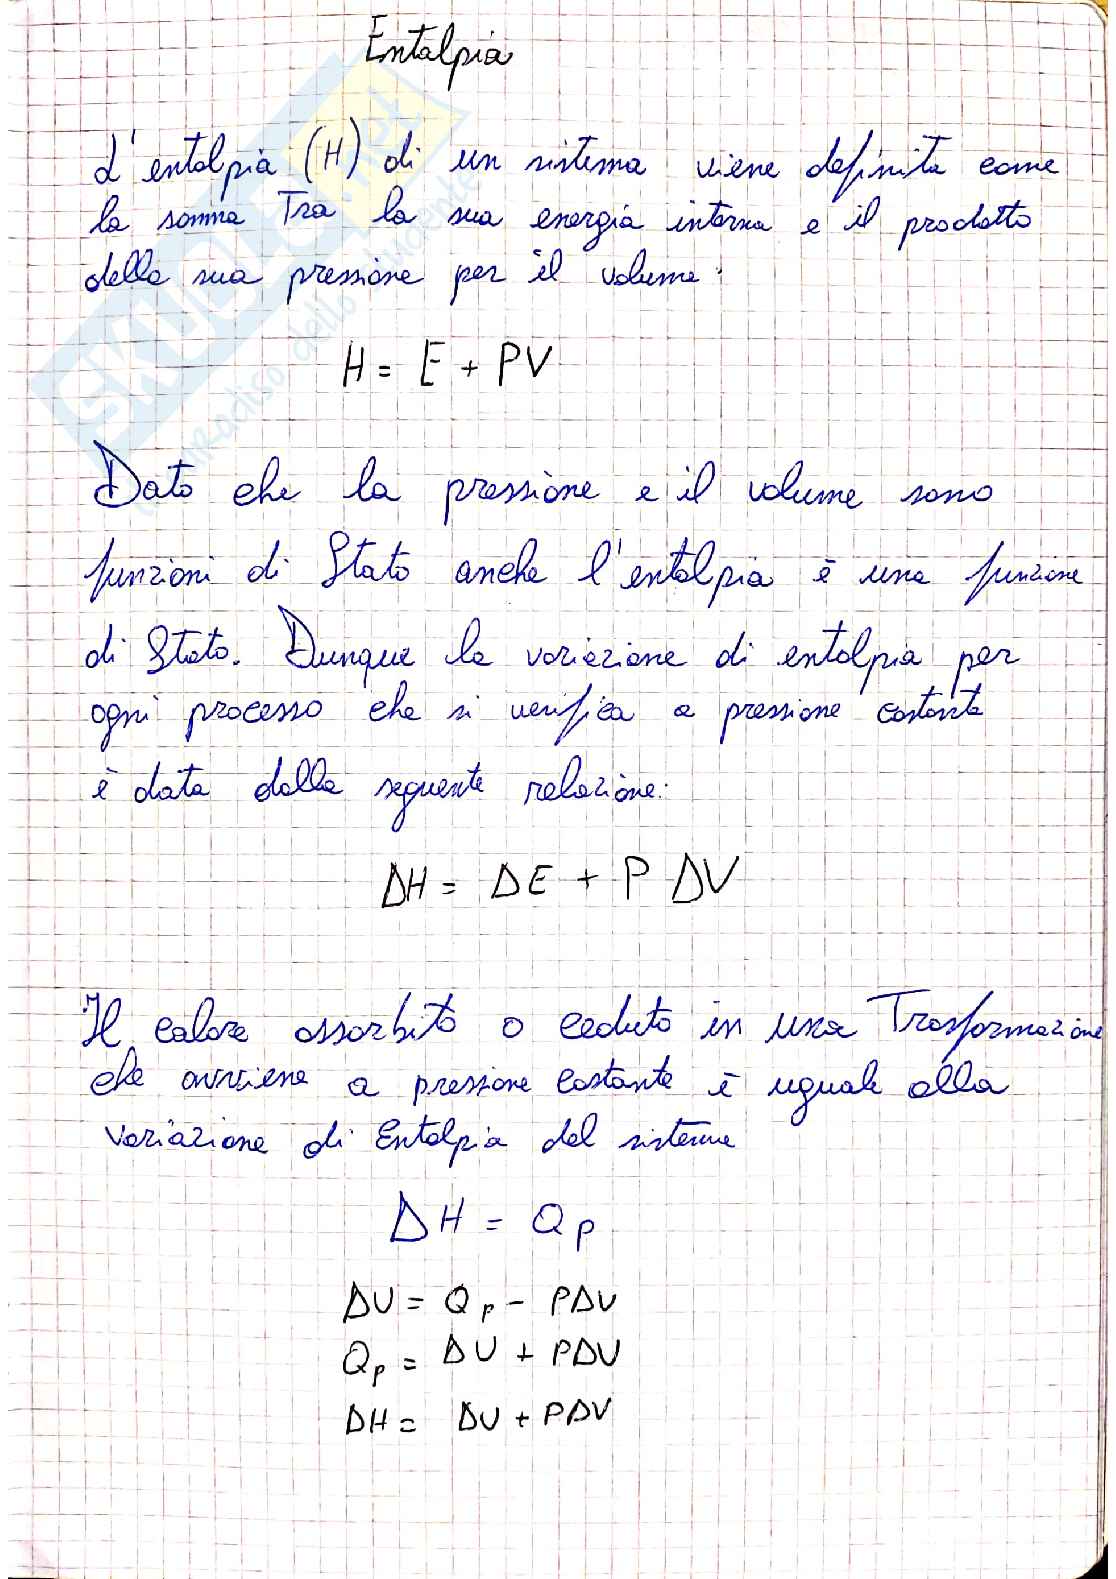 Entalpia
L'entalpia (H) di un sistema viene definita come
la somma Tra la sua energia interna e il prodotto
della sua pressione per il volume:
H = E + PV
Dato che la pressione e il volume sono
funzioni di Stato anche l'entalpia è una funzione
di Stato. Dunque la variazione di entalpia per
ogni processo che si verifica a pressione costante
è data dalla seguente relazione:
ΔH = ΔE + P ΔV
Il calore assorbito o ceduto in una Trasformazione
che avviene a pressione costante è uguale alla
variazione di Entalpia del sistema
ΔH = Qp
ΔU = Qp - PΔV
Qp = ΔU + PΔV
ΔH = ΔU + PΔV